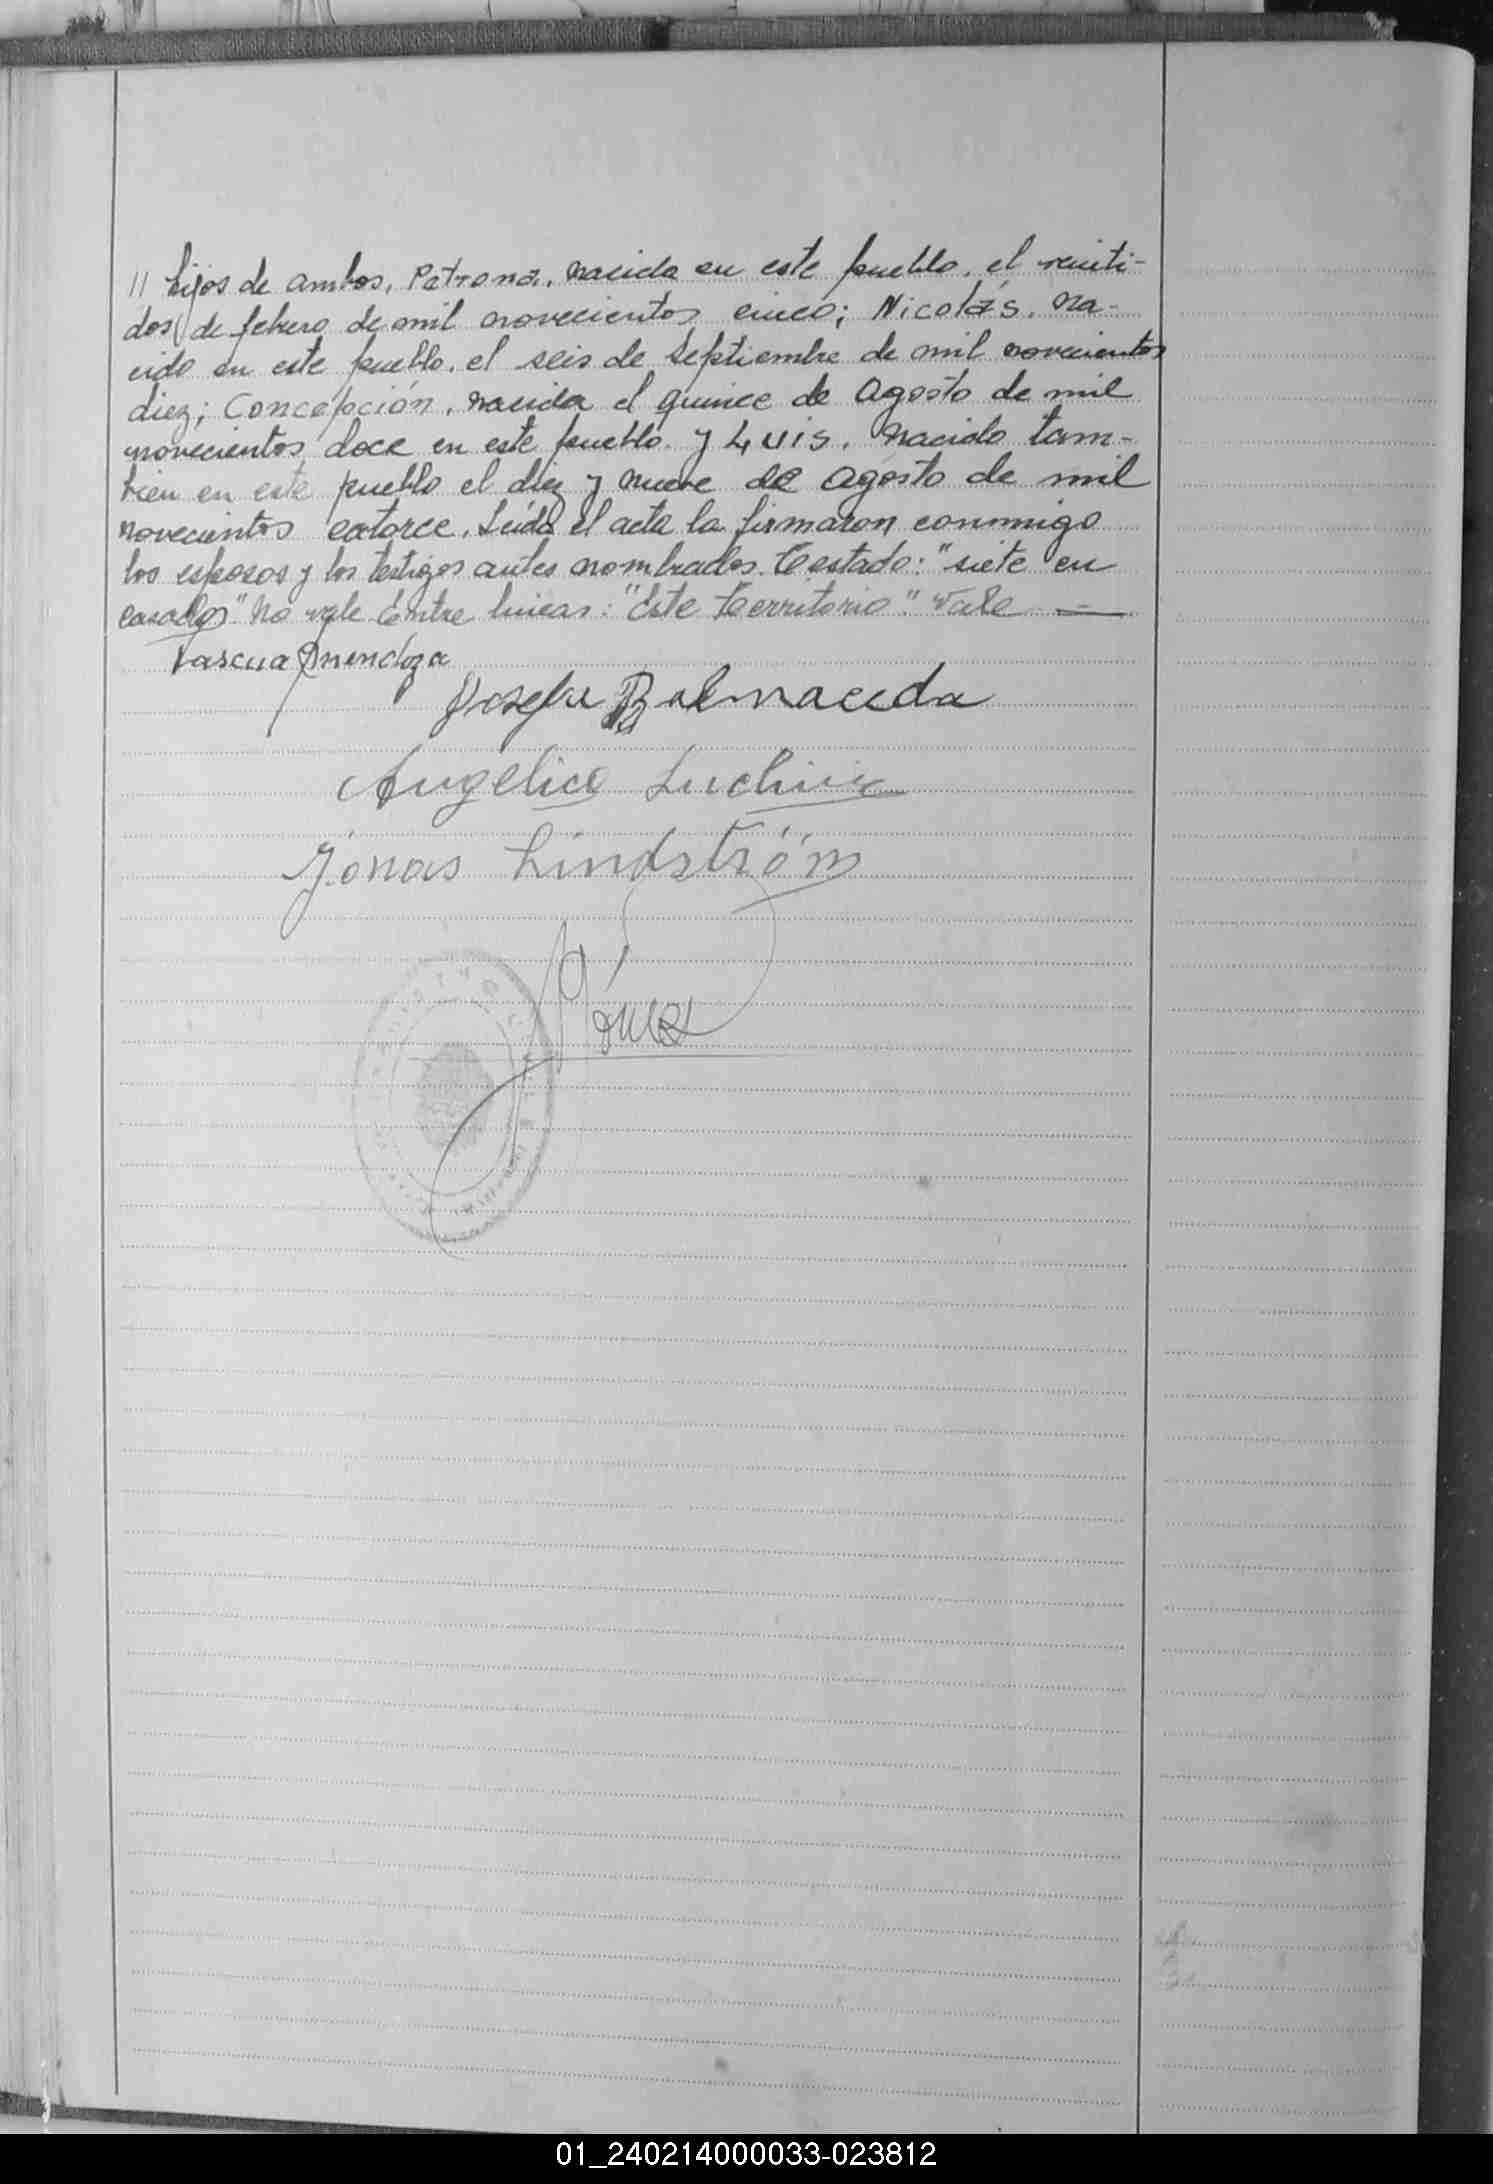 " hijos de ambos, Petrona, nacida en este pueblo, el veinti-
dos de febrero de mil novecientos cinco; Nicolás, na-
cido en este pueblo, el seis de Septiembre de mil novecientos
diez; Concepción, nacida el quince de Agosto de mil
novecientos doce en este pueblo y Luis, nacido tam-
bien en este pueblo el diez y nueve de Agosto de mil
novecientos catorce. Leída el acta la firmaron conmigo
los esposos y los testigos antes nombrados. Testado: "siete en
casados" No vale Entre lineas: "Este Territorio." Vale —
Pascua Mendoza
Josefa Balmaceda
Angelico Luchini
Jonas Lindström
Gómez
01_240214000033-023812